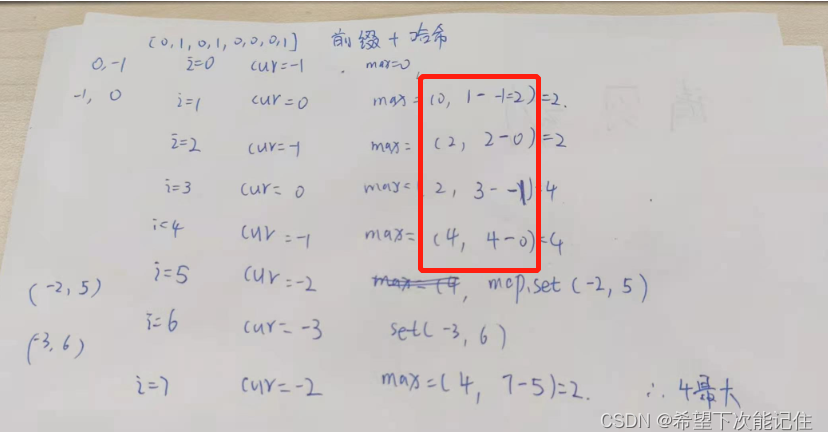 [0,1,0,1,0,0,0,1] 前缀+哈希
0,-1 i=0 cur=-1 . max=0,
-1, 0 i=1 cur=0 max=(0, 1--1=2)=2.
i=2 cur=-1 max=(2, 2-0)=2
i=3 cur=0 max=(2, 3--1)=4
i=4 cur=-1 max=(4, 4-0)=4
(-2,5) i=5 cur=-2 max=(4, map.set(-2,5)
(-3,6) i=6 cur=-3 set(-3,6)
i=7 cur=-2 max=(4, 7-5)=2. ∴4最大
CSDN @希望下次能记住